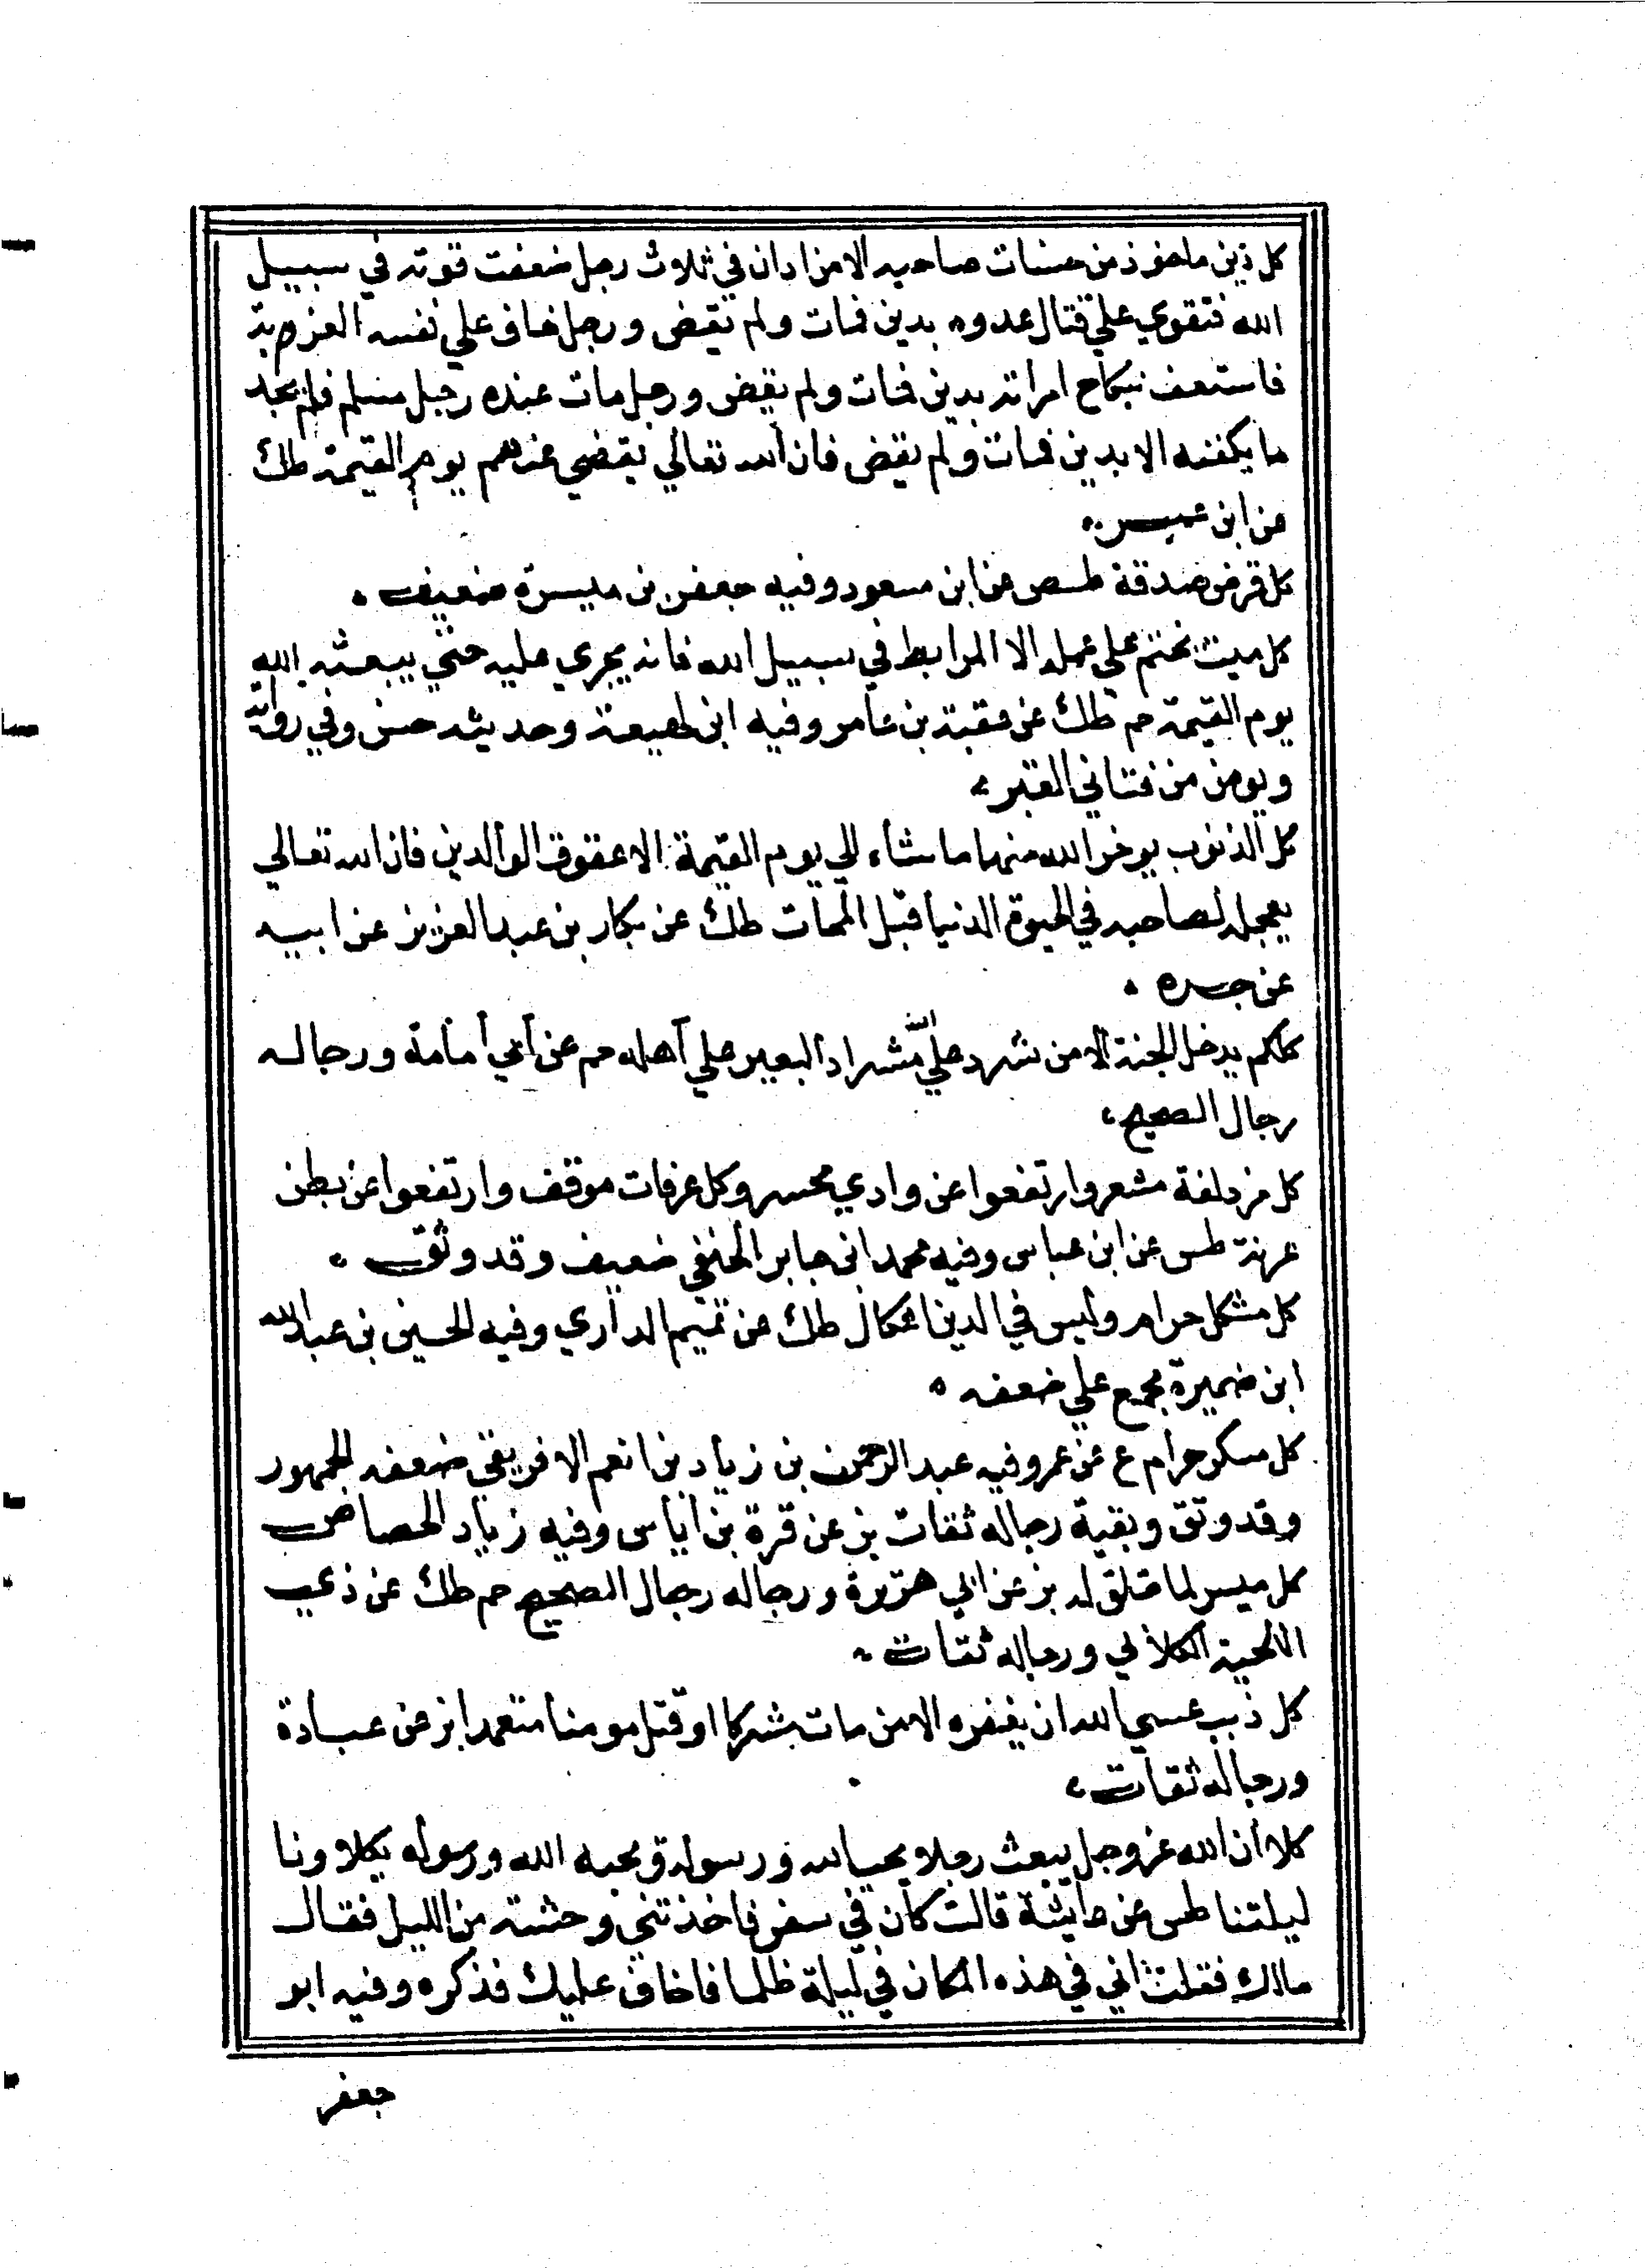 كل دين ماخوذ من حسنات صاحبه الا من ادان في ثلاث رجل ضعفت قوته في سبيل
الله فتقوي علي قتال عدوه بدين فمات ولم يقض ورجل خاف علي نفسه العزوبة
فاستعف بنكاح امراته بدين فمات ولم يقض ورجل مات عنده رجل مسلم فلم يجد
ما يكفنه الا بدين فمات ولم يقض فان الله تعالي يقضي عنهم يوم القيمة طك
عن ابن عمر
كل قرض صدقة طسص عن ابن مسعود وفيه جعفر بن ميسرة ضعيف
كل ميت يختم علي عمله الا المرابط في سبيل الله فانه يجري عليه حتي يبعثه الله
يوم القيمة حم طك عن عقبة بن عامر وفيه ابن لهيعة وحديثه حسن وفي رواية
ويومن من فتاني القبر
كل الذنوب يوخر الله منها ما شاء الي يوم القيمة الا عقوق الوالدين فان الله تعالي
يعجله لصاحبه في الحيوة الدنيا قبل الممات طك عن بكار بن عبد العزيز عن ابيه
عن جده
كلكم يدخل الجنة الا من شرد علي الله شراد البعير علي اهله حم عن أبي أمامة ورجاله
رجال الصحيح
كل مزدلفة مشعر وارتفعوا عن وادي محسر وكل عرفات موقف وارتفعوا عن بطن
عرنة طس عن ابن عباس وفيه محمد ابن جابر الحنفي ضعيف وقد وثق
كل مشكل حرام وليس في الدين اشكال طك عن تميم الداري وفيه الحسين بن عبد الله
ابن ضميرة مجمع علي ضعفه
كل مسكر حرام ع عن عمر وفيه عبد الرحمن بن زياد بن انعم الافريقي ضعفه الجمهور
وقد وثق وبقية رجاله ثقات بز عن قرة بن اياس وفيه زياد الحصاص
كل ميسر لما خلق له بز عن ابي هريرة ورجاله رجال الصحيح حم طك عن ذي
اللحية الكلابي ورجاله ثقات
كل ذنب عسي الله ان يغفره الا من مات مشركا او قتل مومنا متعمدا بز عن عبادة
ورجاله ثقات
كلا ان الله عز وجل يبعث رجلا يحب الله ورسوله ويحبه الله ورسوله يكلاونا
ليلتنا طس عن عايشة قالت كان في سفر فاخذتني وحشة من الليل فقال
مالك فقلت اني في هذه المكان في ليلة ظلما فاخاف عليك فذكره وفيه ابو
جعفر